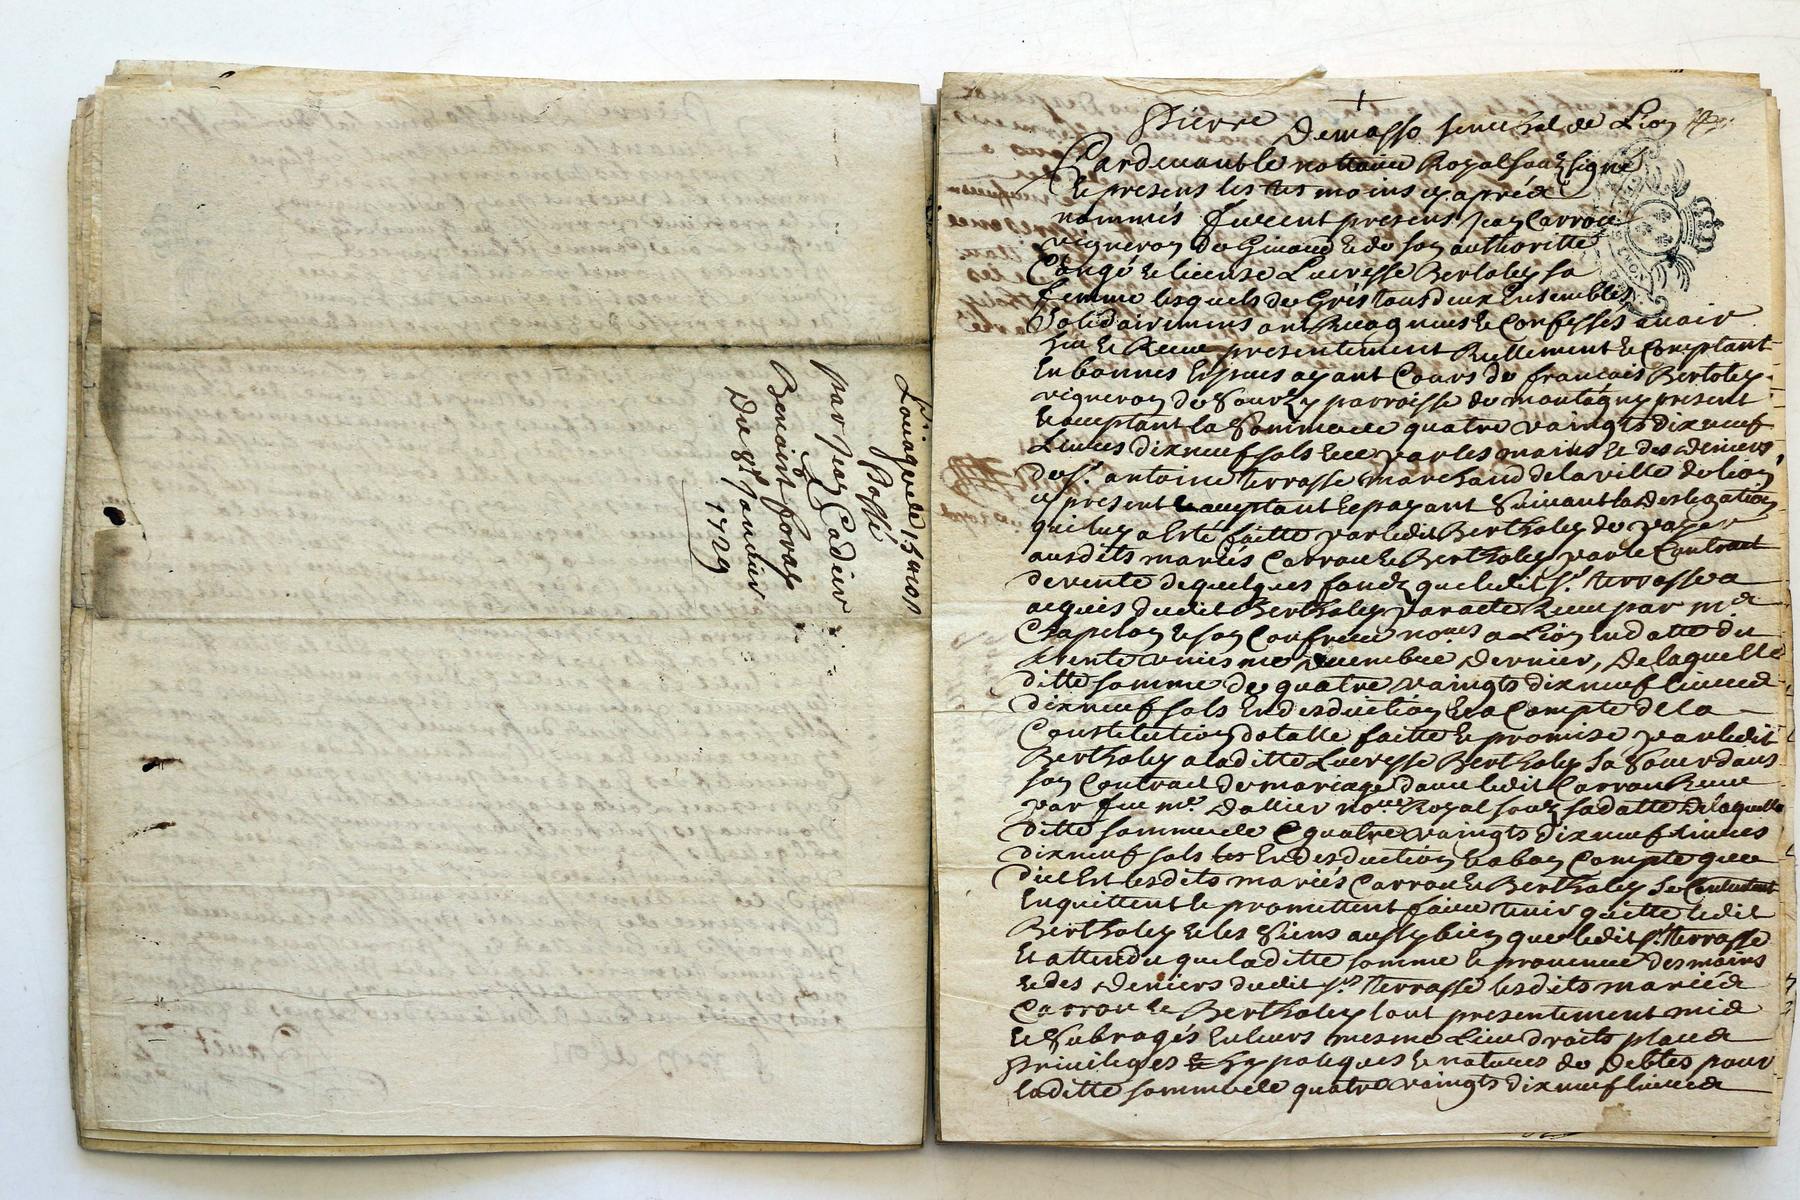 Louage de
Passé
par Jean Cadier
Benoist foray
Du 8e Janvier
1729
Pierre Demasso senechal de Lion
Pardevant le nottaire Royal souzsigné
Et presens les tesmoins cy aprés
nommés furent presens Jean Carron
vigneron de et de son authoritté
Congé et license Lucresse Bertoley sa
femme lesquels de Gré tous deux Ensembles
Solidairemens ont Recognus et Confessés avoir
Eu et Receu presentement Reellement et Comptant
En bonnes Especes ayant Cours de francois Bertoley
vigneron de parroisse de montagny present
et acceptant la Somme de quatre vaingts dix neuf
Livres dix neuf sols et ce par les mains et des deniers
de sr. antoine terrasse marchand de la ville de lion
cy present et acceptant et payant Suivant la deslegation
qui luy a Esté faitte par ledit Bertholey de payer
ausdits mariés Carron et Bertholey par le Contract
de vente de quelques fondz que ledit sr. terrasse a
acquis dudit Bertholey par acte Receu par me.
Chapelon et son Confrere nores a Lion En datte du
trente uniesme decembre dernier, De laquelle
ditte somme de quatre vaingts dix neuf livres
dix neuf sols En desduction et a Compte de la
Constitution dotalle faitte et promise par ledit
Bertholey a laditte Lucresse Bertholey sa Soeur dans
son Contract de mariage d'avec ledit Carron Receu
par feu me. Dallier nore Royal souz sa datte de laquelle
ditte somme de quatre vaingts dix neuf livres
dix neuf sols En desduction et a bon Compte que
dict Est lesdits mariés Carron et Bertholey se Contentent
En quittent et promettent faire tenir quitte ledit
Bertholey et les Siens aussy bien que ledit sr. terrasse
Et attendu que laditte somme et provenue des mains
et des deniers dudit sr. terrasse lesdits mariés
Carron et Bertholey l'ont presentement mis
et Subrogés En leurs mesme Lieu droits place
privileges et hypoteques et natures de debtes pour
laditte somme de quatre vaingts dix neuf livres